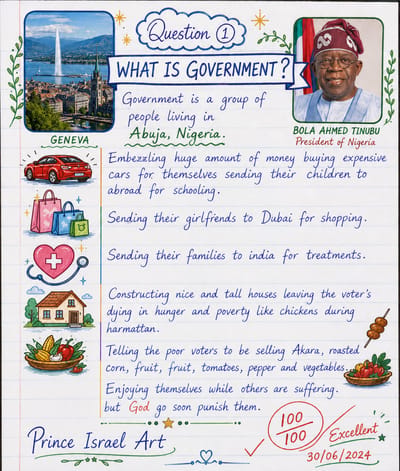 Question 1
WHAT IS GOVERNMENT?
Government is a group of
people living in
Abuja, Nigeria.
GENEVA
BOLA AHMED TINUBU
President of Nigeria
Embezzling huge amount of money buying expensive
cars for themselves sending their children to
abroad for schooling.
Sending their girlfrends to Dubai for shopping.
Sending their families to india for treatments.
Constructing nice and tall houses leaving the voter's
dying in hunger and poverty like chickens during
harmattan.
Telling the poor voters to be selling Akara, roasted
corn, fruit, fruit, tomatoes, pepper and vegetables.
Enjoying themselves while others are suffering.
but God go soon punish them.
100
100
Excellent
30/06/2024
Prince Israel Art